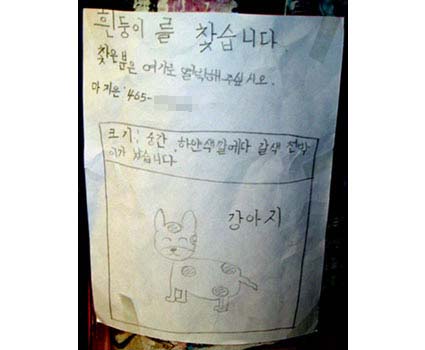 흰둥이 를 찾습니다.
찾은분은 여기로 연락해 주십시오.
마지은: 465-
크기: 중간, 하얀색 털에다 갈색 점박
이가 났습니다.
강아지